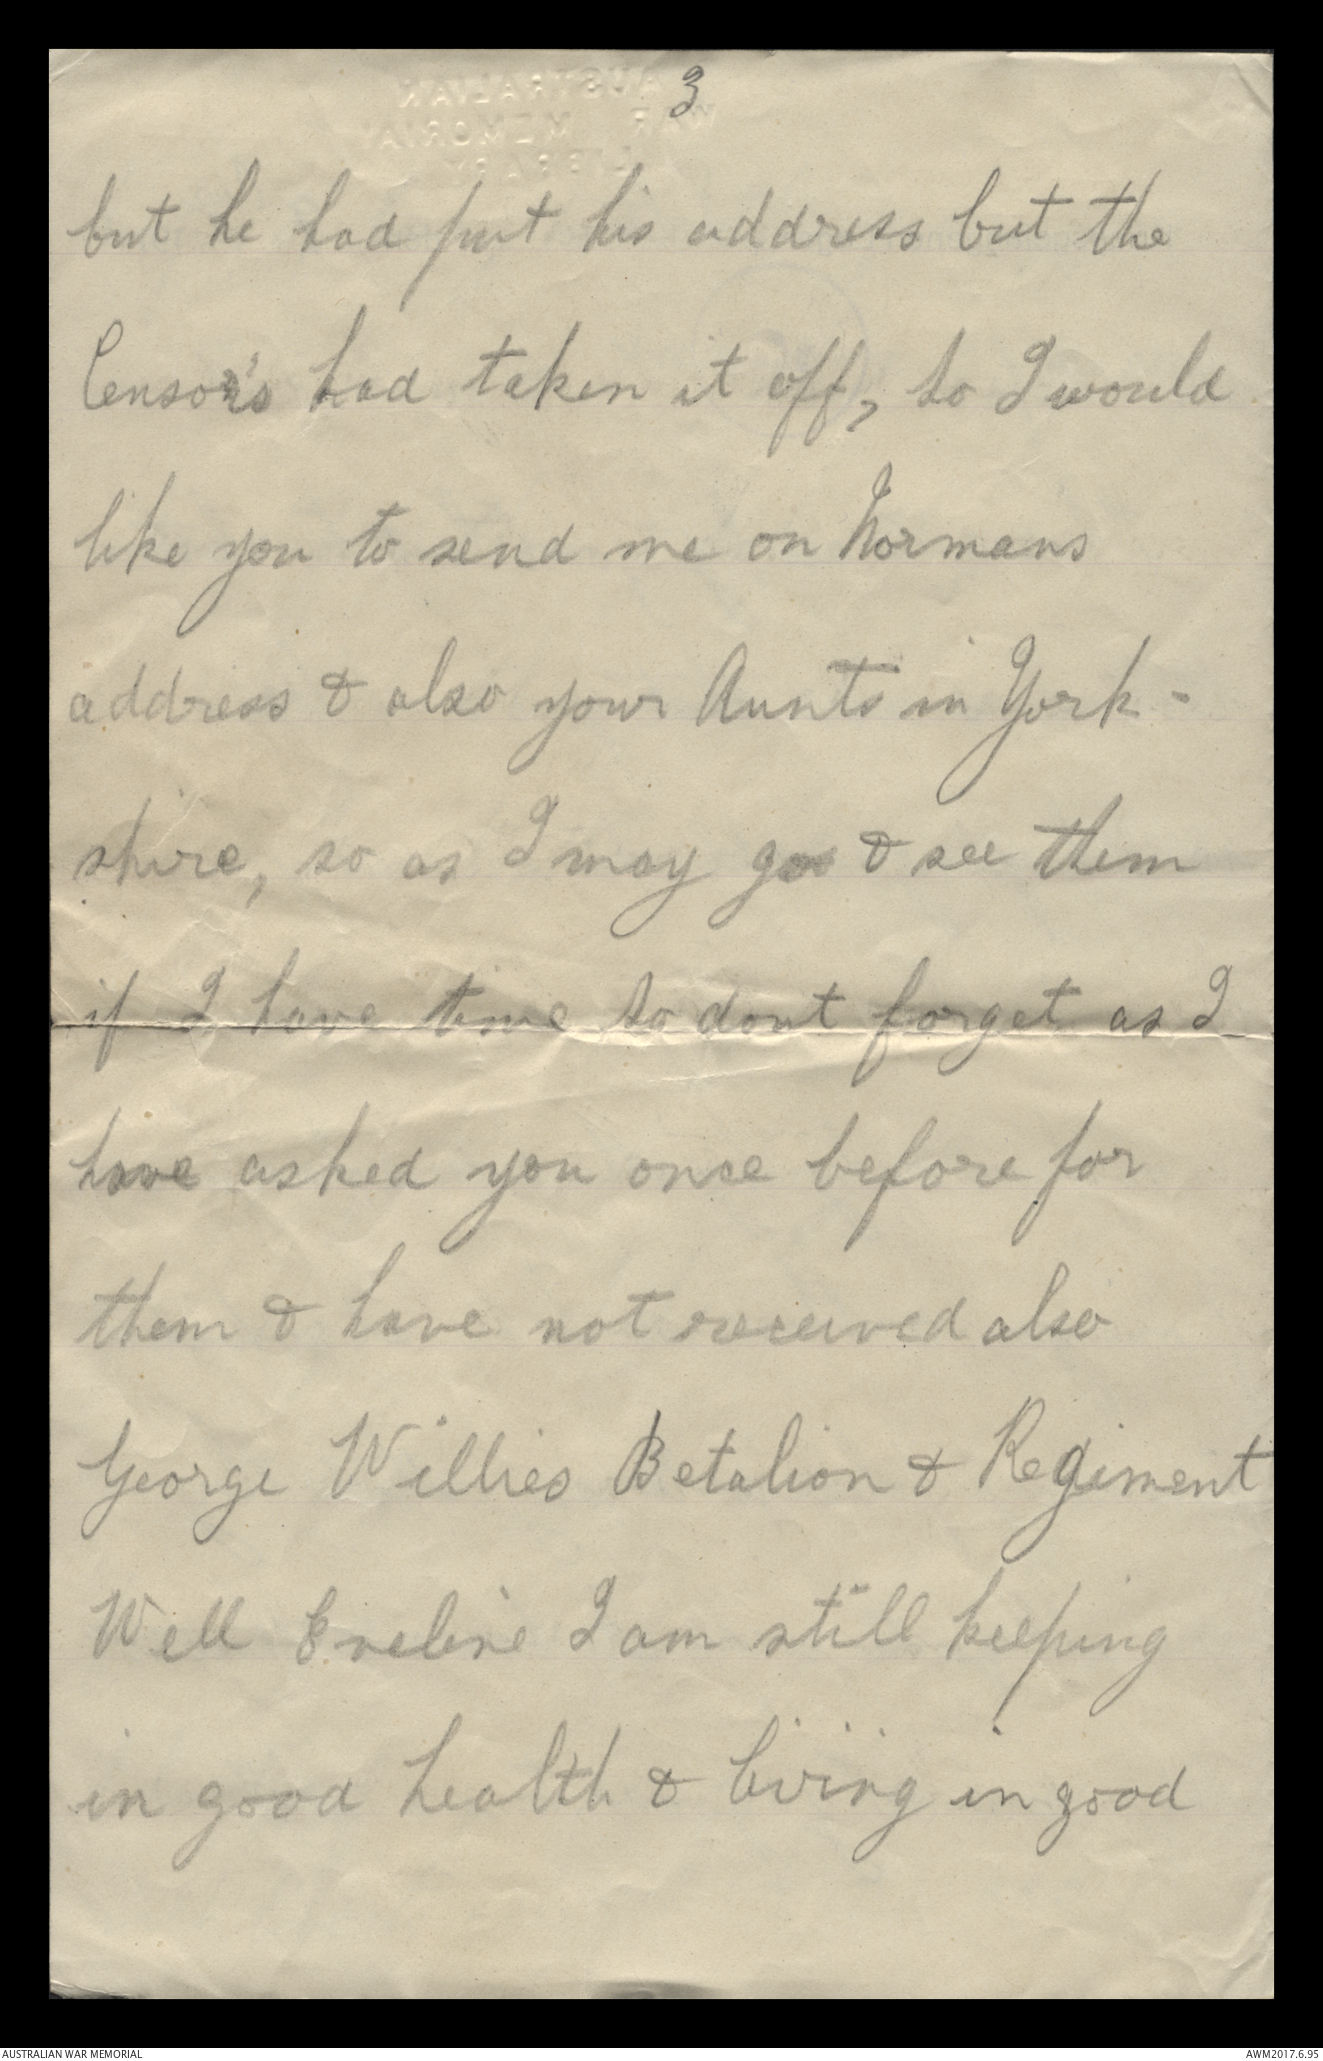 3
but he had put his address but the
Censor's had taken it off, so I would
like you to send me on Normans
address & also your Aunts in York -
shire, so as I may go & see them
if I have time so dont forget as I
have asked you once before for
them & have not received also
George Willies Betalion & Regiment
Well Eveline I am still keeping
in good health & living in good
AUSTRALIAN
WAR MEMORIAL
LIBRARY
AUSTRALIAN WAR MEMORIAL
AWM2017.6.95